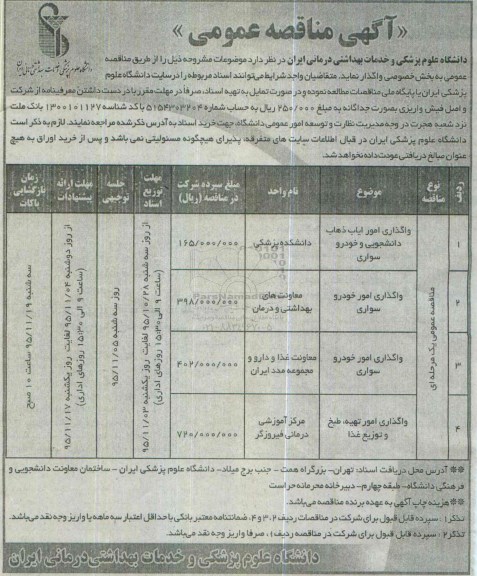 «آگهی مناقصه عمومی»
دانشگاه علوم پزشکی و خدمات بهداشتی درمانی ایران در نظر دارد موضوعات مشروحه ذیل را از طریق مناقصه
عمومی به بخش خصوصی واگذار نماید. متقاضیان واجد شرایط می‌توانند اسناد مربوطه را در سایت دانشگاه علوم
پزشکی ایران یا پایگاه ملی مناقصات مطالعه نموده و در صورت تمایل به تهیه اسناد، صرفاً در مهلت مقرر با در دست داشتن معرفینامه از شرکت
و اصل فیش واریزی بصورت جداگانه به مبلغ ۲۵۰/۰۰۰ ریال به حساب شماره ۵۱۵۴۳۰۳۲۰۴ با کد شناسه ۱۳۰۰۱۰۱۱۲۷ بانک ملت
نزد شعبه هجرت در وجه مدیریت نظارت و توسعه امور عمومی دانشگاه، جهت خرید اسناد به آدرس ذکر شده مراجعه نمایند. لازم به ذکر است
دانشگاه علوم پزشکی ایران در قبال اطلاعات سایت های متفرقه، پذیرای هیچگونه مسئولیتی نمی باشد و پس از خرید اوراق به هیچ
عنوان مبالغ دریافتی عودت داده نخواهد شد.
ردیف نوع مناقصه موضوع نام واحد مبلغ سپرده شرکت در مناقصه (ریال) مهلت توزیع اسناد جلسه توجیهی مهلت ارائه پیشنهادات زمان بازگشایی پاکات
مناقصه عمومی یک مرحله ای
۱ واگذاری امور ایاب ذهاب دانشجویی و خودرو سواری دانشکده پزشکی ۱۶۵/۰۰۰/۰۰۰
۲ واگذاری امور خودرو سواری معاونت های بهداشتی و درمان ۳۹۸/۰۰۰/۰۰۰
۳ واگذاری امور خودرو سواری معاونت غذا و دارو و مجموعه مدد ایران ۴۰۲/۰۰۰/۰۰۰
۴ واگذاری امور تهیه، طبخ و توزیع غذا مرکز آموزشی درمانی فیروزگر ۷۲۰/۰۰۰/۰۰۰
از روز سه شنبه ۹۵/۱۰/۲۸ لغایت روز یکشنبه ۹۵/۱۱/۰۳ (ساعت ۹ الی ۱۵:۳۰ روزهای اداری)
روز سه شنبه ۹۵/۱۱/۰۵
از روز دوشنبه ۹۵/۱۱/۰۴ لغایت روز یکشنبه ۹۵/۱۱/۱۷ (ساعت ۹ الی ۱۵:۳۰ روزهای اداری)
سه شنبه ۹۵/۱۱/۱۹ ساعت ۱۰ صبح
** آدرس محل دریافت اسناد: تهران- بزرگراه همت - جنب برج میلاد- دانشگاه علوم پزشکی ایران - ساختمان معاونت دانشجویی و
فرهنگی دانشگاه- طبقه چهارم- دبیرخانه محرمانه حراست
** هزینه چاپ آگهی به عهده برنده مناقصه می‌باشد.
تذکر۱: سپرده قابل قبول برای شرکت در مناقصات ردیف ۲،۳ و ۴، ضمانتنامه معتبر بانکی با حداقل اعتبار سه ماهه یا واریز وجه نقد می‌باشد.
تذکر۲: سپرده قابل قبول برای شرکت در مناقصه ردیف ۱، صرفا واریز وجه نقد می‌باشد.
دانشگاه علوم پزشکی و خدمات بهداشتی درمانی ایران